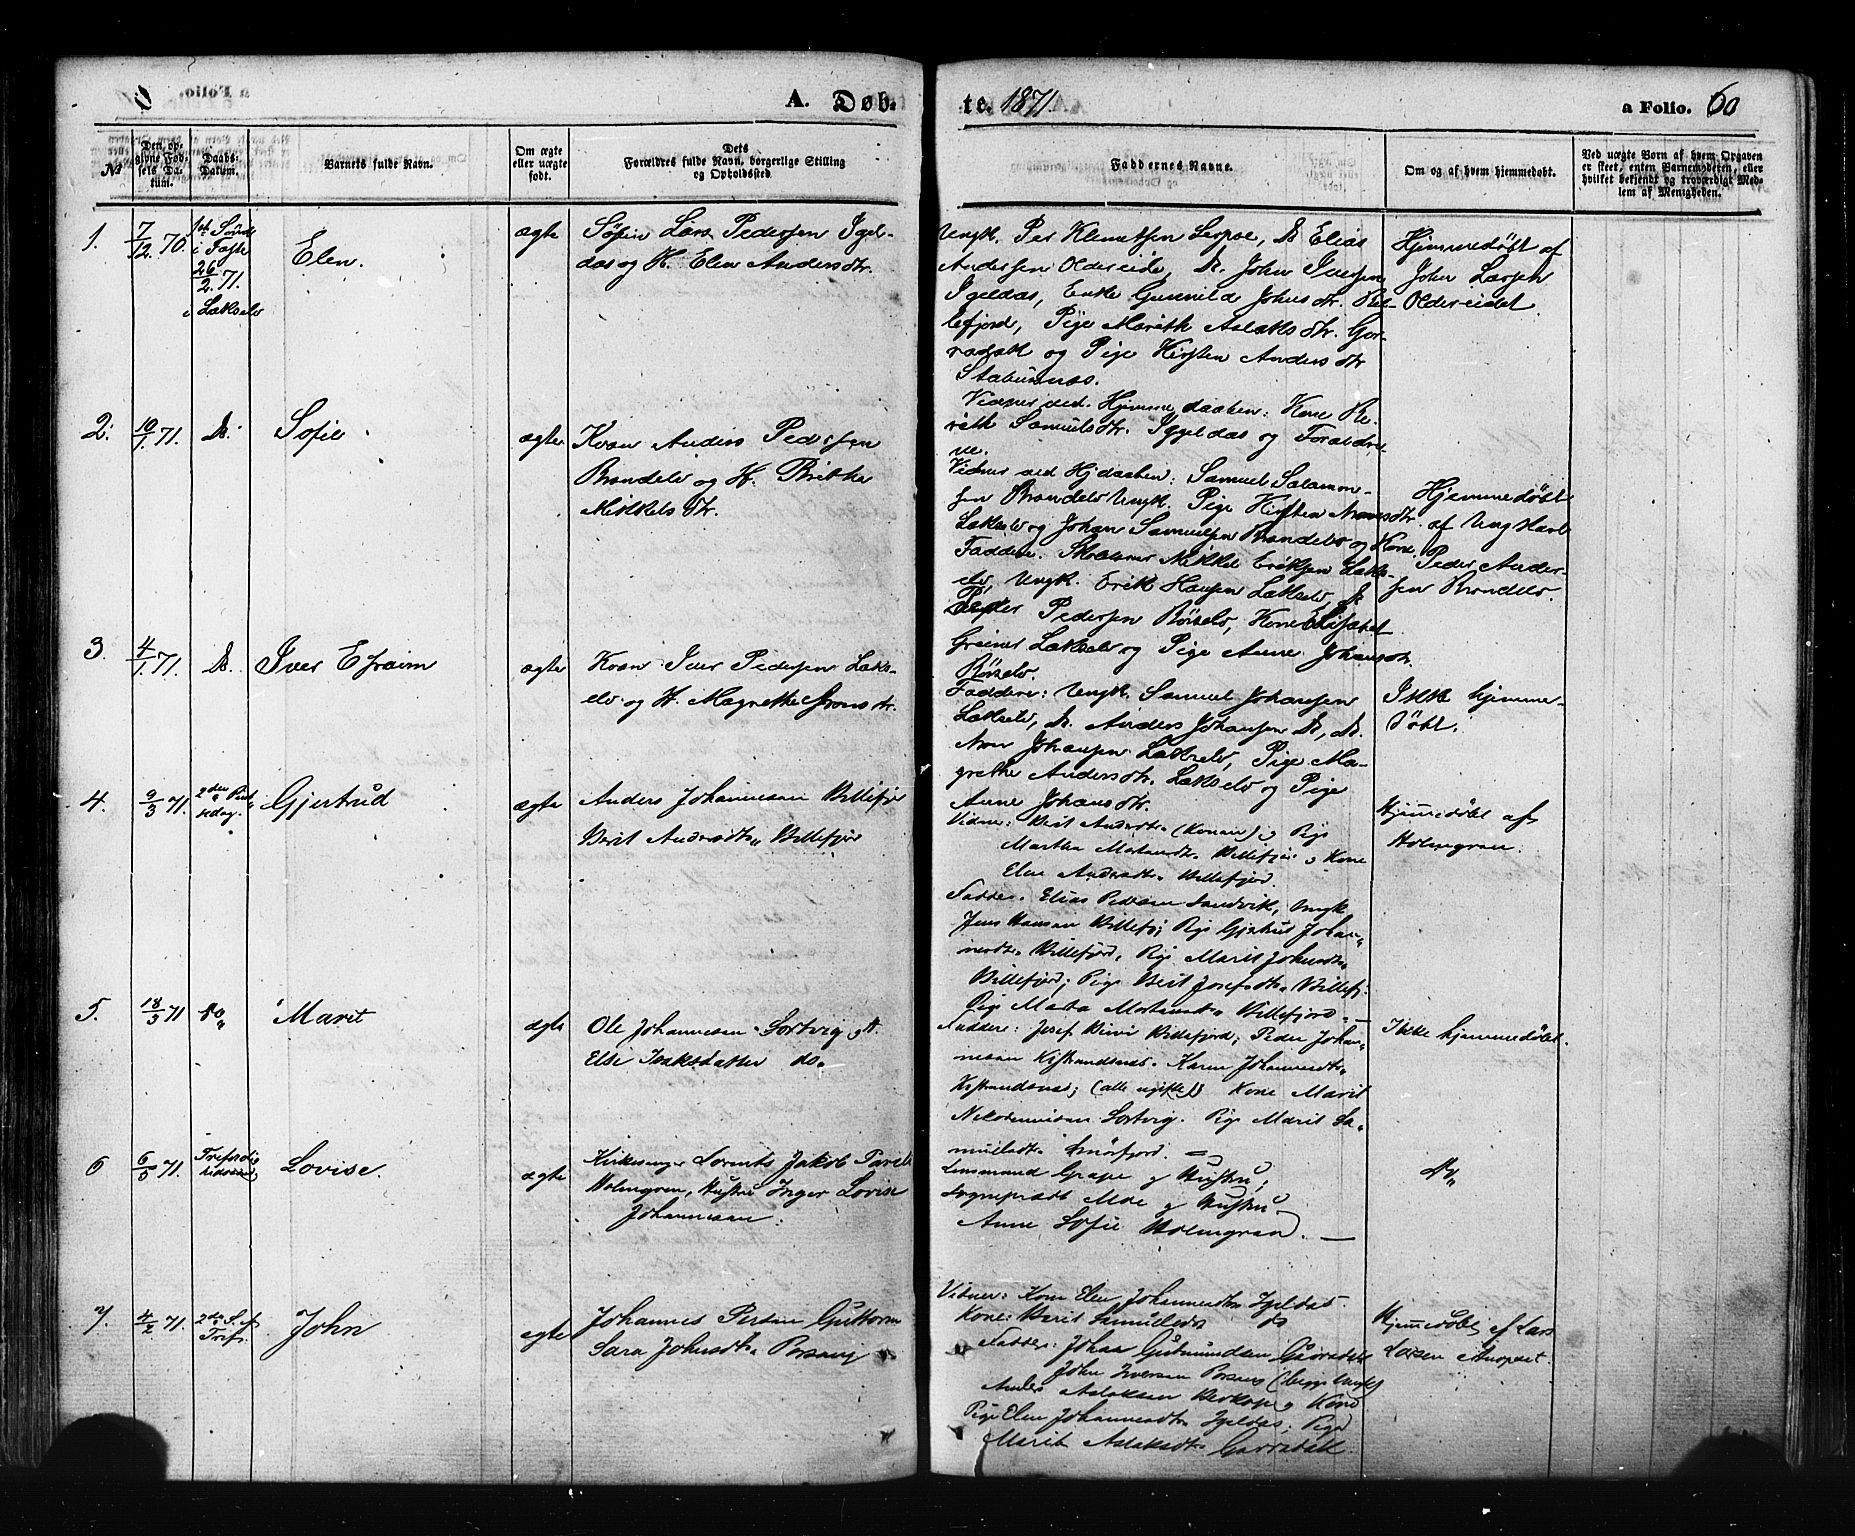 a Folio.
A. Døb-
te. 1871.
a Folio. 60
№
Den opgivne Fødsels Datum.
Daabs-Datum.
Barnets fulde Navn.
Om ægte eller uægte født.
Dets Forældres fulde Navn, borgerlige Stilling og Opholdssted.
Faddernes Navne.
Om og af hvem hjemmedøbt.
Ved uægte Børn af hvem Opgaven er skeet, enten Barnemoderen, eller hvilket bekjendt og troværdigt Medlem af Menigheden.
1.
7/12. 70.
1ste Sønd
i Faste
26/2. 71.
i Lakselv
Elen.
ægte
Søfin Lars Pedersen Igel-
das og H. Elen Andersdtr.
Ungk. Per Klemetsen Leipoe, D. Elias
Andersen Oldereide, D. John Iversen
Igeldas, Enke Gunnild Johnsdtr. Kol-
lefjord, Pige Marith Aslaksdtr. Gor-
radak og Pige Kirsten Andersdtr
Stabursnes.
Vidner ved Hjemmedaaben: Kone Be-
rith Samuelsdtr. Iggeldas og Foraldre-
ne.
Hjemmedøbt af
John Larsen
Oldereidet.
2.
10/1. 71.
D.
Sofie.
ægte
Kvæn Anders Pedersen
Brandelv og H. Britha
Mikkelsdtr.
Vidner ved Hjdaaben: Samuel Salamon-
sen Brandelv Ungk. Pige Kirsten Aronsdtr.
Lakselv og Johan Samuelsen Brandelv og Kone.
Faddere. Mikkel Eriksen Laks-
elv, Ungk. Erik Hansen Lakselv, D.
Peder Pedersen Børselv, Kone Elisabet
Greiner Lakselv og Pige Anne Johansdtr.
Børselv.
Hjemmedøbt
af Ungkarl
Peder Ander-
sen Brandelv.
3.
4/1. 71.
D.
Iver Efraim
ægte
Kvæn Iver Pedersen Laks-
elv og H. Magrethe Aronsdtr.
Faddere: Ungk. Samuel Johansen
Lakselv, D. Anders Johansen D., D.
Aron Johansen Lakselv, Pige Ma-
grethe Andersdtr. Lakselv og Pige
Anne Johansdtr.
Ikke hjemme-
døbt.
4.
9/3 71.
2den Pint-
sedag.
Gjertrud
ægte
Anders Johannesen Billefjor
Berit Andersdtr Billefjor
Vidner: Berit Andersdtr (Konen) og Pige
Martha Mortensdtr Billefjor og Kone
Elen Andersdtr Billefjord.
Fadder. Elias Pedersen Sandvik, Ungk
Jens Hansen Billefj; Pige Gjertrud Johan-
nesdtr Billefjord, Pige Marit Johnsdtr
Billefjord; Pige Berit Josefsdtr Billefj.
Pige Marta Mortensdtr Billefjord.
Hjemmedøbt af
Holmgren.
5.
18/3 71
do
Marit
ægte
Ole Johannesen Sortvig og H.
Elsi Isaksdatter do.
Faddere: Josef Billefjord; Peder Johan-
nesen Kistrandnes. Karen Johannesdtr
Kistrandnes; (alle ugifte) Kone Marit
Nikodemusen Sortvig. Pige Marit Sa-
muelsdtr Smørfjord.
Ikke hjemmedøbt.
6
6/5 71.
Trefoldig
hedssønd
Lovise.
ægte
Kirkesanger Lorents Jakob Pavels
Holmgren, Hustru Inger Lovise
Johannesen.
Lensmand Grape og Hustru;
Sogneprest Moe og Hustru
Anne Sofie Holmgren.
do
7.
4/2 71.
2den S. ef
Tref.
John
ægte
Johannes Persen Guttorm
Sara Johnsdtr Porsang
Vidner: Kone Elen Johannesdtr Igeldas.
Kone Berit Samuelsd do
Fadder: Johan Gudmundsen Gairradak
John Iversen Porsang (begge Ungk)
Anders Aslaksen og Kone
Pige Elen Johannesdtr Igeldas; Pige
Marit Aslaksdtr Gairradak.
Hjemmedøbt af Lars
Larsen Auopset.